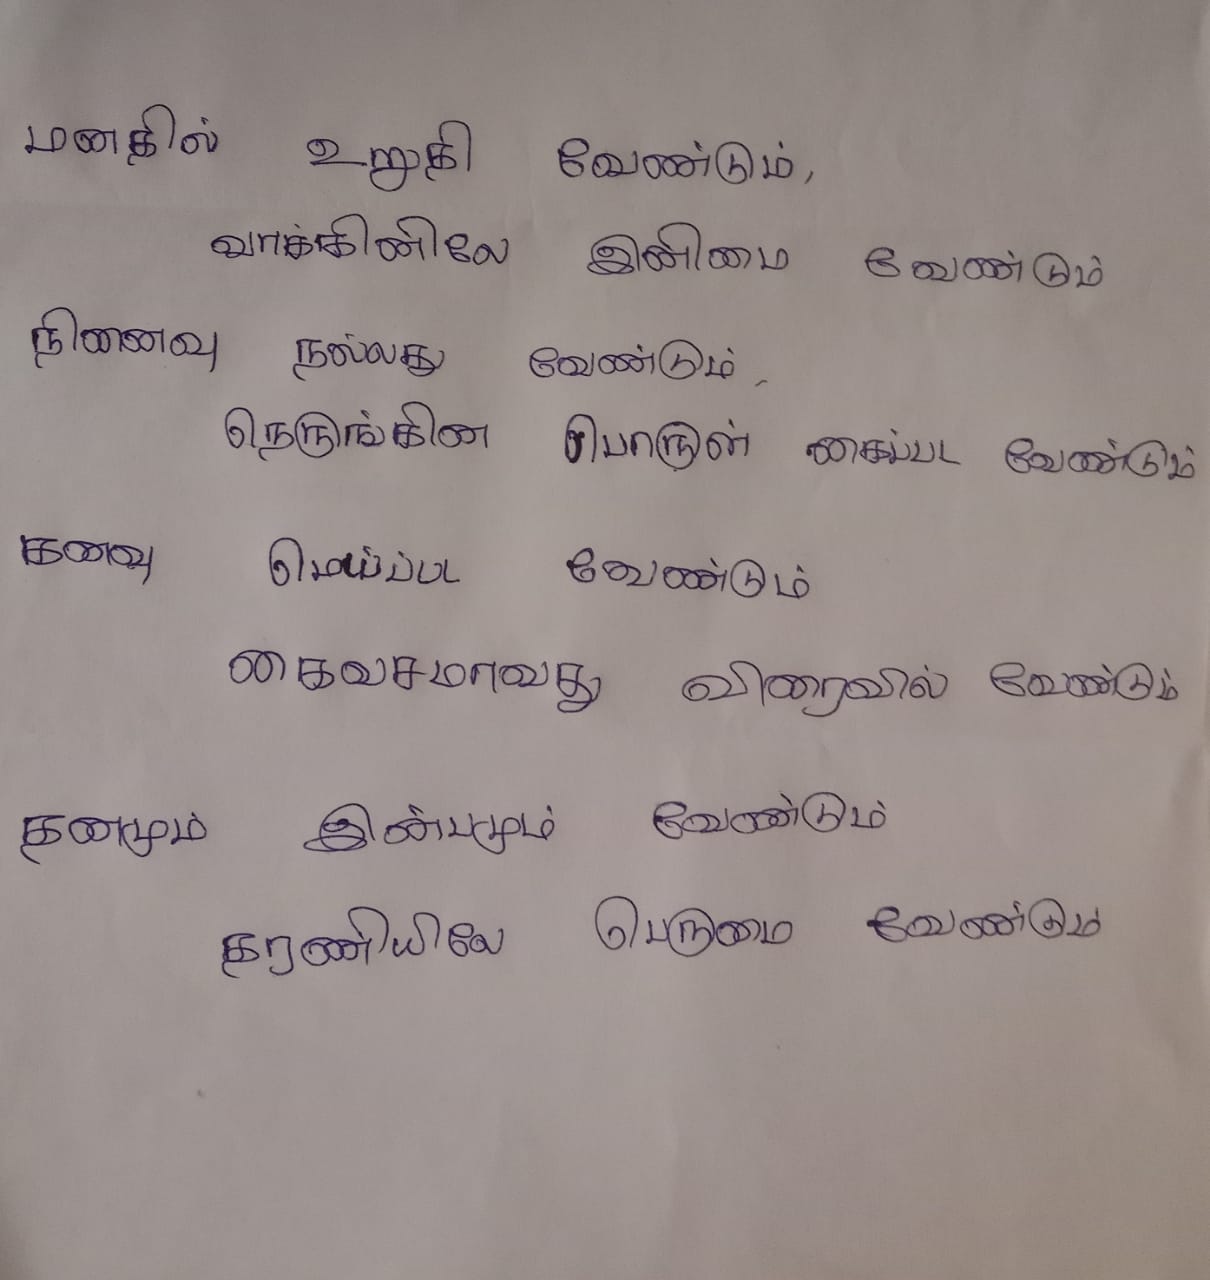 மனதில் உறுதி வேண்டும்,
வாக்கினிலே இனிமை வேண்டும்
நினைவு நல்லது வேண்டும்,
நெருங்கின பொருள் கைப்பட வேண்டும்
கனவு மெய்ப்பட வேண்டும்
கைவசமாவது விரைவில் வேண்டும்
தனமும் இன்பமும் வேண்டும்
தரணியிலே பெருமை வேண்டும்